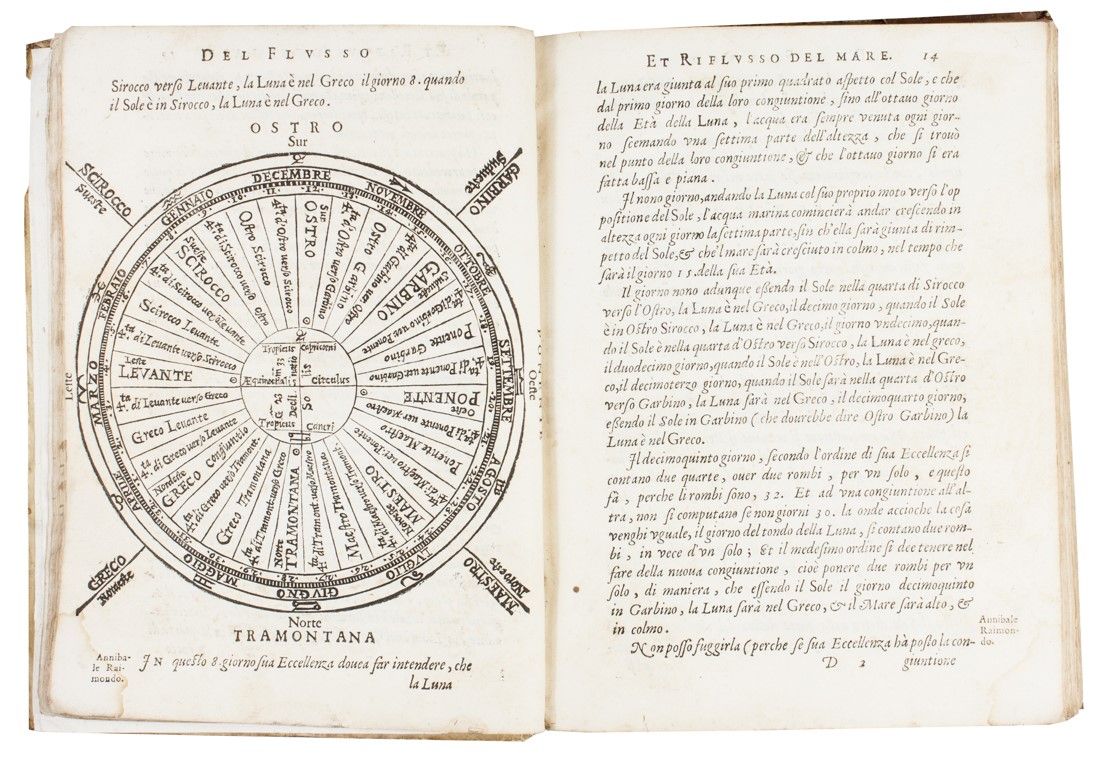 DEL FLVSSO
Sirocco verso Leuante, la Luna è nel Greco il giorno 8. quando
il Sole è in Sirocco, la Luna è nel Greco.
OSTRO
Sur
SCIROCCO
Sueste
GARBINO
GENNAIO
DECEMBRE
NOVEMBRE
OTTOBRE
SETTEMBRE
AGOSTO
LUGLIO
GIUGNO
MAGGIO
APRILE
MARZO
FEBRAIO
Leste
Oeste
Sur
OSTRO
Ostro Garbino
GARBINO
Ponente Garbino
PONENTE
Ponente Maestro
MAESTRO
Maestro Tramontana
TRAMONTANA
Norte
Greco Tramontana
GRECO
Greco Leuante
4.ta di Leuante uerso Greco
Leste
LEVANTE
4.ta di Leuante uerso Scirocco
Scirocco Leuante
SCIROCCO
Sueste
Ostro Scirocco
Tropicus Capricorni
Æquinoctialis Circulus
Tropicus Cancri
GRECO
Nordeste
MAESTRO
Norte
TRAMONTANA
Anniba-
le Rai-
mondo.
IN questo 8. giorno sua Eccellenza douea far intendere, che
la Luna
ET RIFLVSSO DEL MARE. 14
la Luna era giunta al suo primo quadrato aspetto col Sole, e che
dal primo giorno della loro congiuntione, sino all'ottauo giorno
della Età della Luna, l'acqua era sempre venuta ogni gior-
no scemando vna settima parte dell'altezza, che si trouò
nel punto della loro congiuntione, & che l'ottauo giorno si era
fatta bassa e piana.
Il nono giorno, andando la Luna col suo proprio moto verso l'op
positione del Sole, l'acqua marina comincierà andar crescendo in
altezza ogni giorno la settima parte, sin ch'ella sarà giunta di rim-
petto del Sole, & che'l mare sarà cresciuto in colmo, nel tempo che
sarà il giorno 15 della sua Età.
Il giorno nono adunque essendo il Sole nella quarta di Sirocco
verso l'Ostro, la Luna è nel Greco, il decimo giorno, quando il Sole
è in Ostro Sirocco, la Luna è nel Greco, il giorno vndecimo, quan-
do il Sole è nella quarta d'Ostro verso Sirocco, la Luna è nel greco,
il duodecimo giorno, quando il Sole è nell'Ostro, la Luna è nel Gre-
co, il decimoterzo giorno, quando il Sole sarà nella quarta d'Ostro
verso Garbino, la Luna sarà nel Greco, il decimoquarto giorno,
essendo il Sole in Garbino (che dourebbe dire Ostro Garbino) la
Luna è nel Greco.
Il decimoquinto giorno, secondo l'ordine di sua Eccellenza si
contano due quarte, ouer due rombi, per vn solo, e questo
fà, perche li rombi sono, 32. Et ad vna congiuntione all'al-
tra, non si computano se non giorni 30. la onde accioche la cosa
venghi vguale, il giorno del tondo della Luna, si contano due rom-
bi, in vece d'vn solo; & il medesimo ordine si dee tenere nel
fare della nuoua congiuntione, cioè ponere due rombi per vn
solo, di maniera, che essendo il Sole il giorno decimoquinto
in Garbino, la Luna sarà nel Greco, & il Mare sarà alto, &
in colmo.
Non posso fuggirla (perche se sua Eccellenza hà posto la con-
Annibale
Raimon-
do.
D 2 giuntione